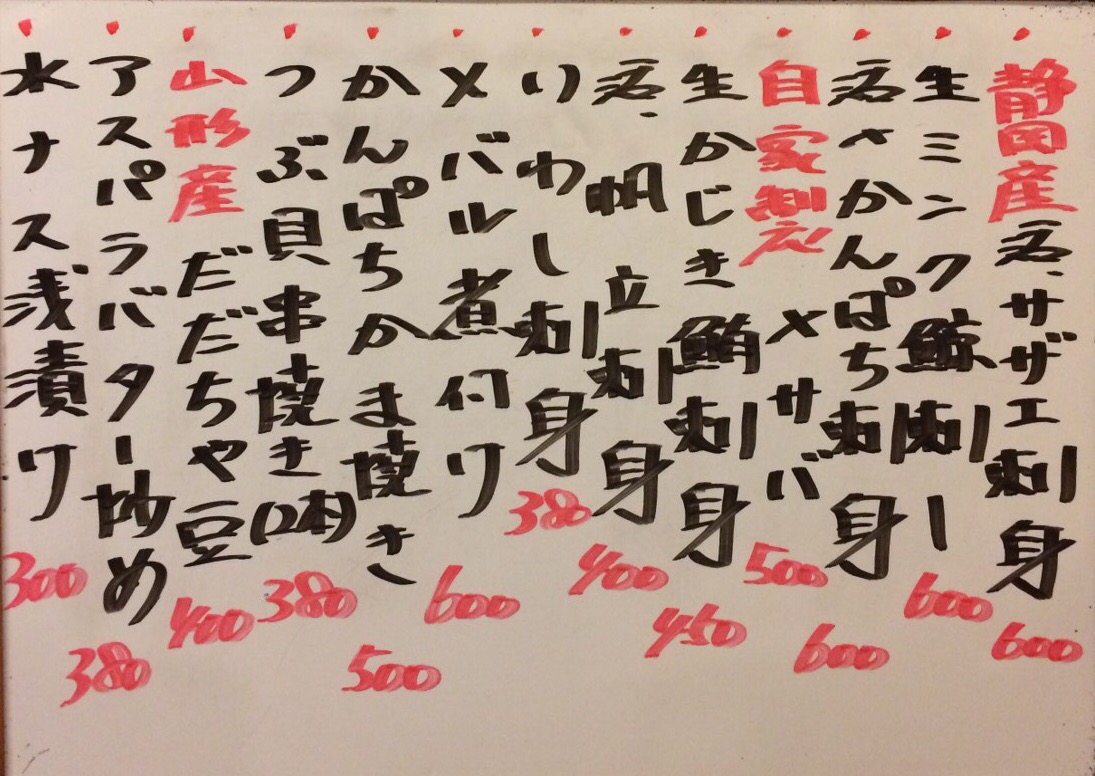 静岡産活サザエ刺身 600
生ミンク鯨刺し 600
活〆かんぱち刺身 600
自家製〆サバ 500
生かじき鮪刺身 450
活帆立刺身 400
いわし刺身 380
メバル煮付け 600
かんぱちかま焼き 500
つぶ貝串焼き(2本) 380
山形産だだちゃ豆 400
アスパラバター炒め 380
水ナス浅漬け 300